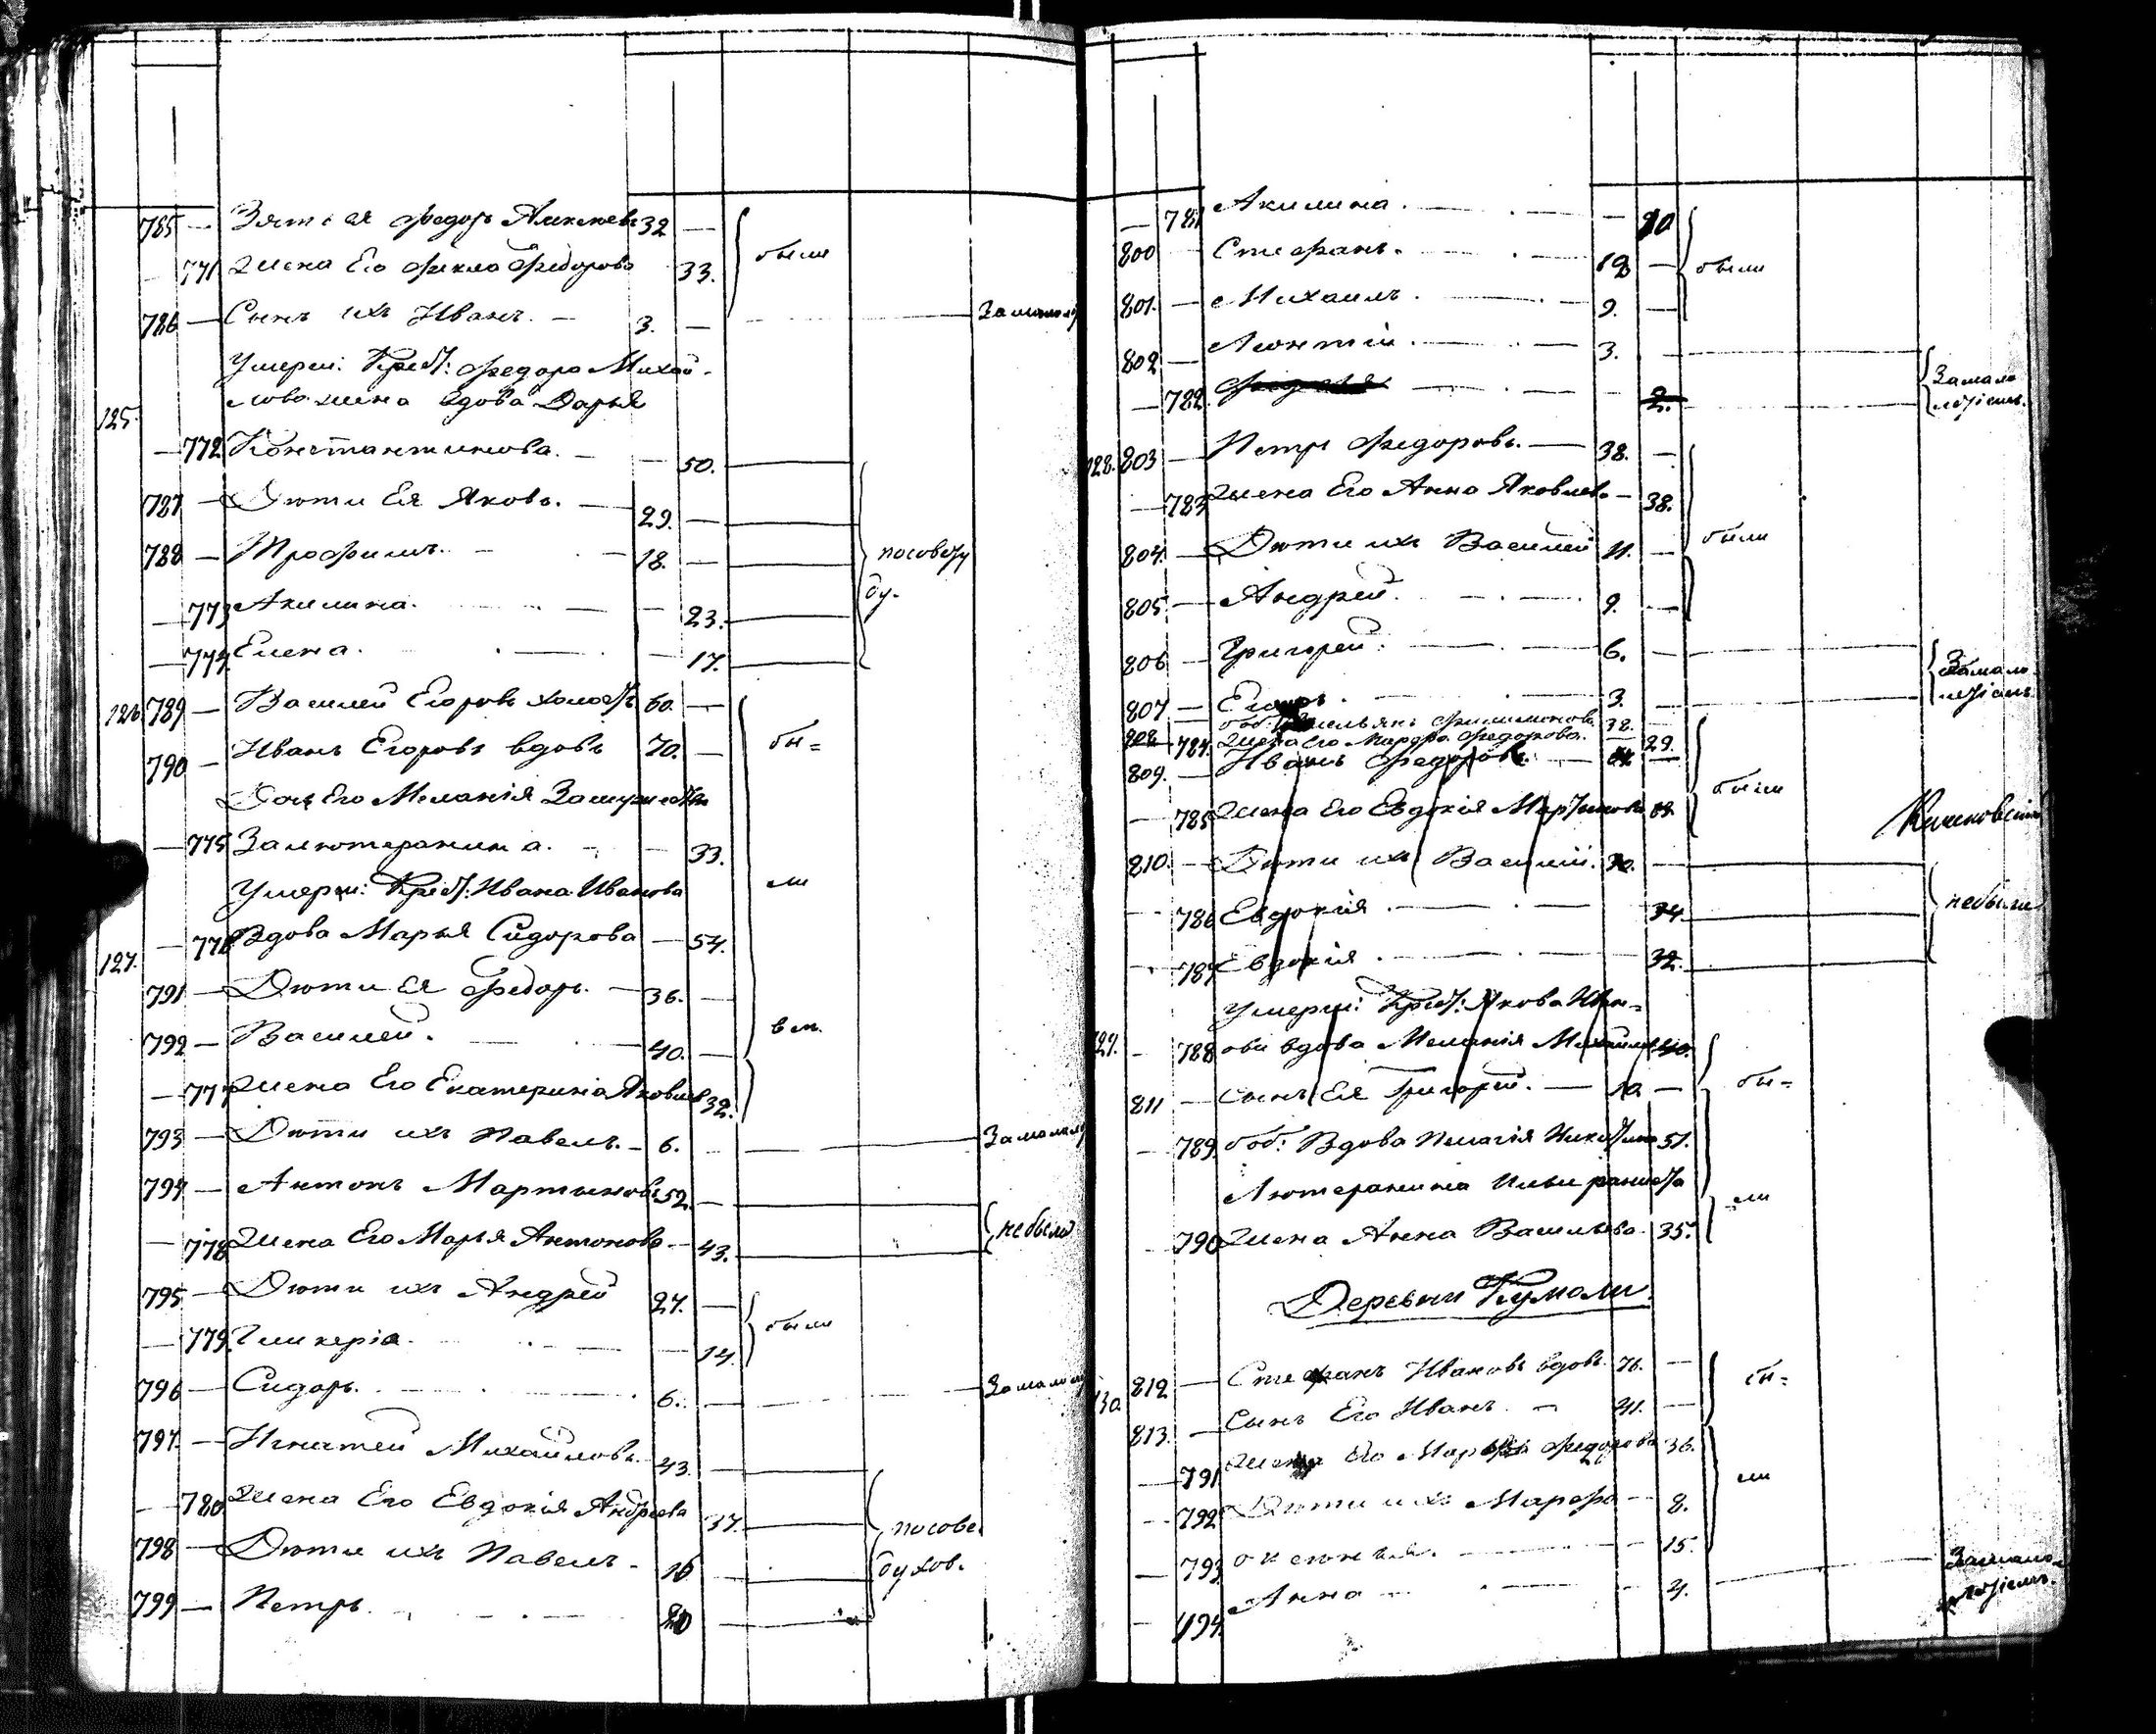 785 — Зять ея Федоръ Алексеевъ 32 — были
— 771 Жена Его Фекла Федорова 33.
786 — Сынъ ихъ Иванъ. — 3. — За малол
Умерш: Крест: Федора Михай-
125. лова жена вдова Дарья
— 772 Константинова. — — 50.
787 — Дѣти Ея Яковъ. — 29. —
788 — Трофимъ. — 18. — пособству
— 773 Акилина. — — 23. бу-
— 774. Елена. — — 17.
126. 789 — Василей Егоровъ холостъ 60. —
790 — Иванъ Егоровъ вдовъ 70. — бы=
Дочь Его Меланія Замужемъ
— 775 За лютеранина. — — 33.
Умерш: Крест: Ивана Иванова ли
127. — 776 Вдова Марья Сидорова — 54.
791 — Дѣти Ея Федоръ. — 36. —
792 — Василей. — 40. — вси.
— 777 Жена Его Екатерина Яковлев 32.
793 — Дѣти ихъ Павелъ. — 6. — За малол
794 — Антонъ Мартыновъ 52. —
— 778 Жена Его Марья Антонова — 43. не были
795 — Дѣти ихъ Андрей 27. —
— 779. Гликерія. — — 14. были
796 — Сидоръ. — 6. — За малол
797. — Игнатей Михайловъ. 43. —
— 780. Жена Его Евдокія Андреева 37.
798 — Дѣти ихъ Павелъ. — 16 — по сове.
799 — Петръ. — духов.
— 781 Акилина. — —
800 Стефанъ. — — были
801. — Михаилъ. — 9. —
802 — Леонтій. — 3. — За мало
— 782. — 2. лѣтіемъ.
128. 803 — Петръ Федоровъ. — 38. —
— 783 Жена Его Анна Яковлева — 38.
804. — Дѣти ихъ Василей 11. — были
805 — Андрей. — 9. —
806 — Григорей. — 6. — За мало
807 — Егоръ. — 3. — лѣтіемъ
808 Филимоновъ 38. —
— 784. Жена Его Марфа Федорова. — 29.
809. — Иванъ Федоровъ. — —
— 785 Жена Его Евдокія Мартынова были
810. — Дѣти ихъ Василій. —
— 786 Евдокія. — 34. не были
— 787 Евдокія. — 32.
Умерш: Крест: Якова Ива=
129. — 788 ова вдова Меланія
811 — Сынъ Ея Григорей. — 10. — бы=
— 789. боб: Вдова Пелагія 51.
Лютеранина
— 790 Жена Анна Васильева 35. ли
Деревни Кумоли.
130. 812 — Стефанъ Ивановъ вдовъ. 76. — бы=
813. — Сынъ Его Иванъ. — 41. —
— 791 Жена Его Марфа Федорова 36.
— 792 Дѣти ихъ Марфа — 8. ли
— 793. — 15.
— 794. Анна — — 4. За мало-
лѣтіемъ.